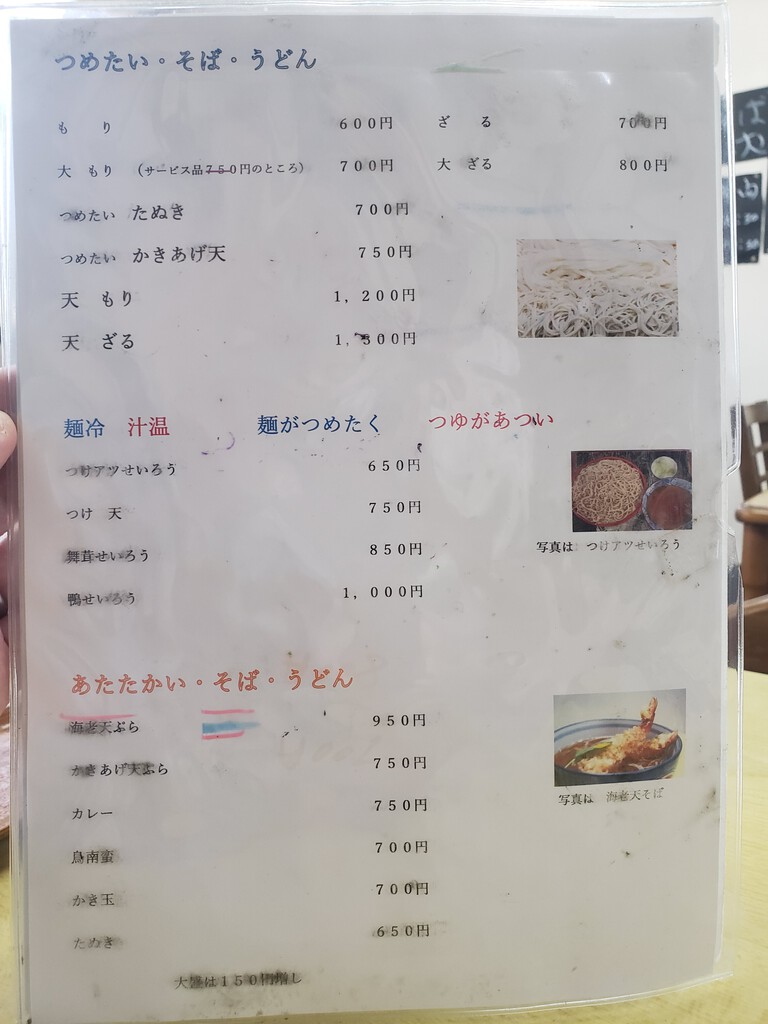 つめたい・そば・うどん
もり 600円 ざる 700円
大 もり (サービス品750円のところ) 700円 大 ざる 800円
つめたい たぬき 700円
つめたい かきあげ天 750円
天 もり 1,200円
天 ざる 1,300円
麺冷 汁温 麺がつめたく つゆがあつい
つけアツせいろう 650円
つけ 天 750円
舞茸せいろう 850円
写真は つけアツせいろう
鴨せいろう 1,000円
あたたかい・そば・うどん
海老天ぷら 950円
かきあげ天ぷら 750円
写真は 海老天そば
カレー 750円
鳥南蛮 700円
かき玉 700円
たぬき 650円
大盛は150円増し